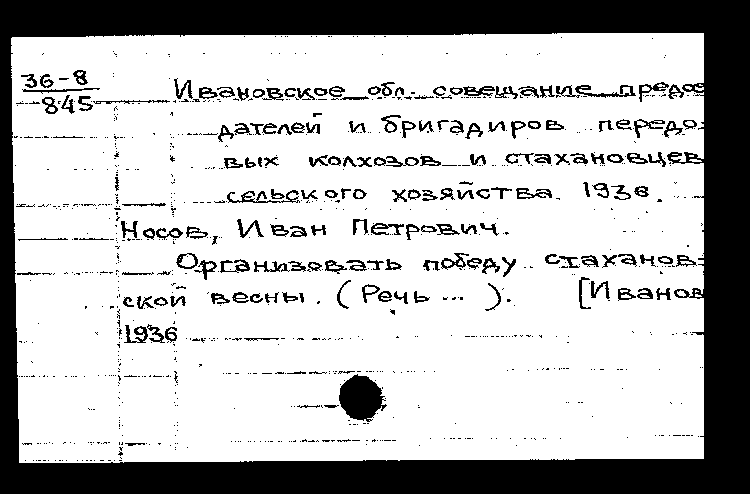 36-8
845
Ивановское обл. совещание предсе
дателей и бригадиров передо-
вых колхозов и стахановцев
сельского хозяйства. 1936.
Носов, Иван Петрович.
Организовать победу стаханов-
ской весны. (Речь ... ). [Иванов
1936